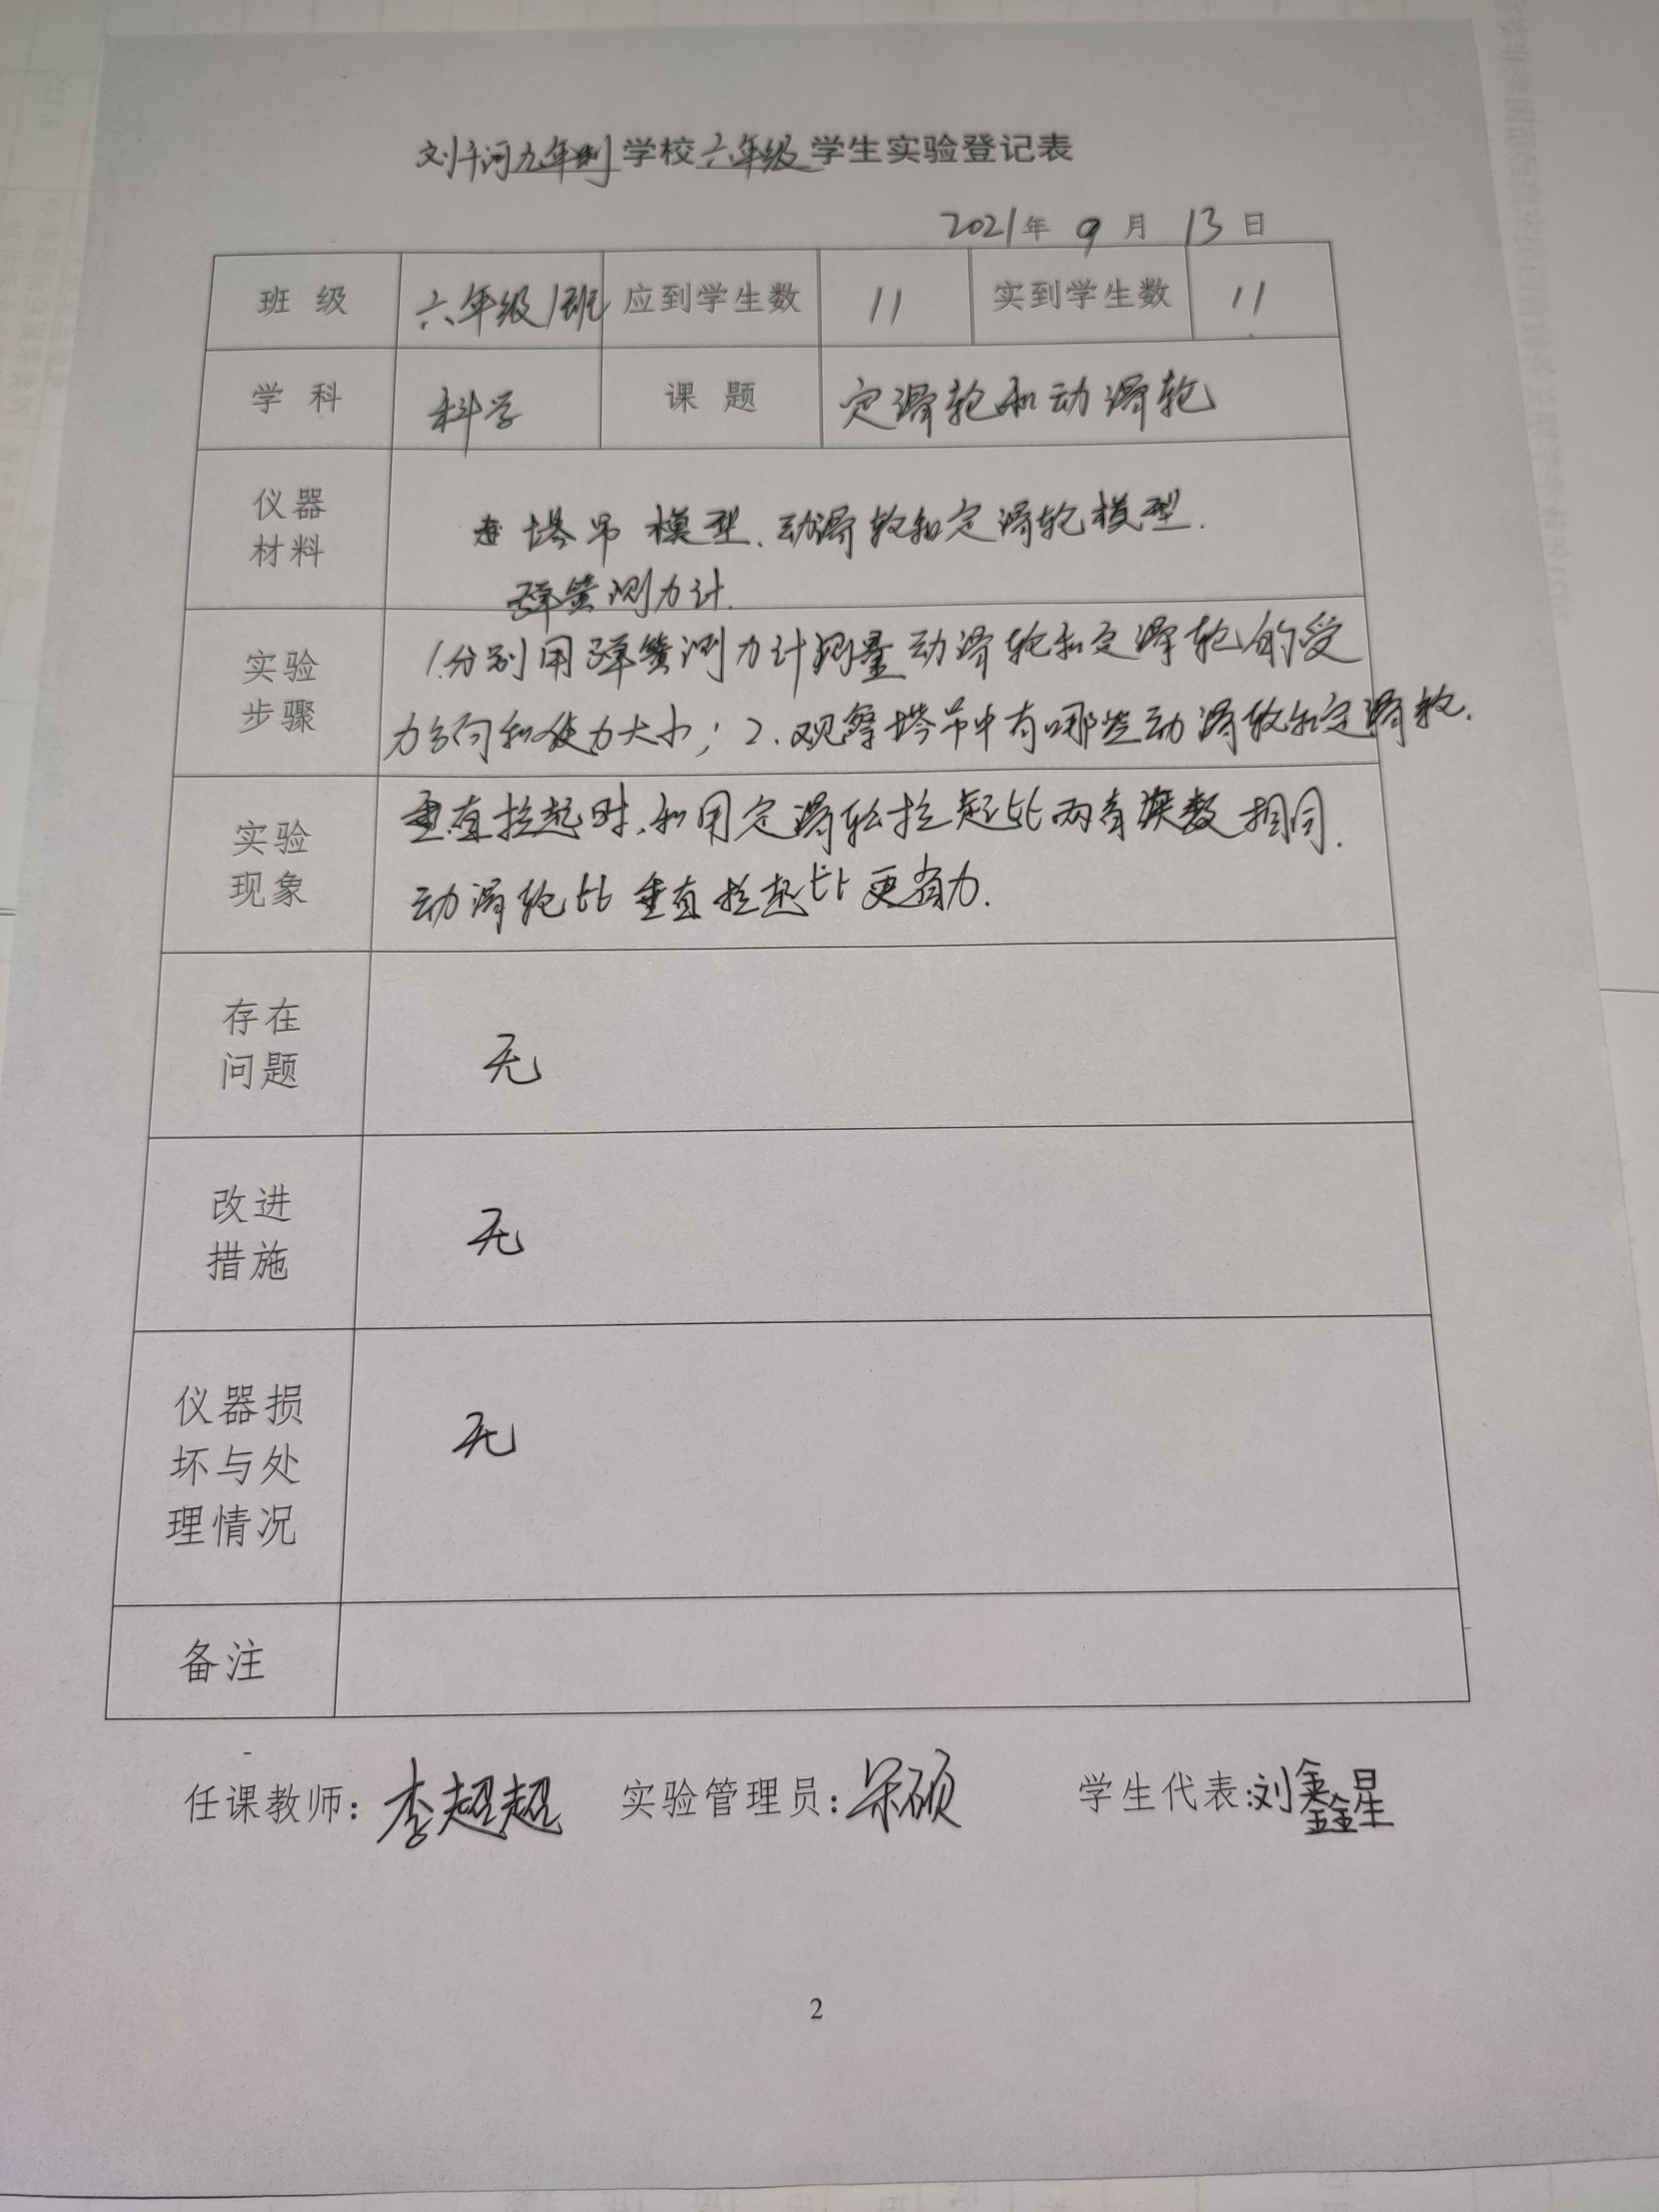 刘千河九年制学校六年级学生实验登记表
2021年 9 月 13 日
班 级 六年级1班 应到学生数 11 实到学生数 11
学 科 科学 课 题 定滑轮和动滑轮
仪器
材料
塔吊模型、动滑轮和定滑轮模型.
弹簧测力计.
实验
步骤
1.分别用弹簧测力计测量动滑轮和定滑轮的受
力方向和使力大小；2.观察塔吊中有哪些动滑轮和定滑轮.
实验
现象
垂直拉起时,和用定滑轮拉起比两者读数相同.
动滑轮比垂直拉起比更省力.
存在
问题
无
改进
措施
无
仪器损
坏与处
理情况
无
备注
任课教师：李超超 实验管理员：宋硕 学生代表：刘鑫星
2